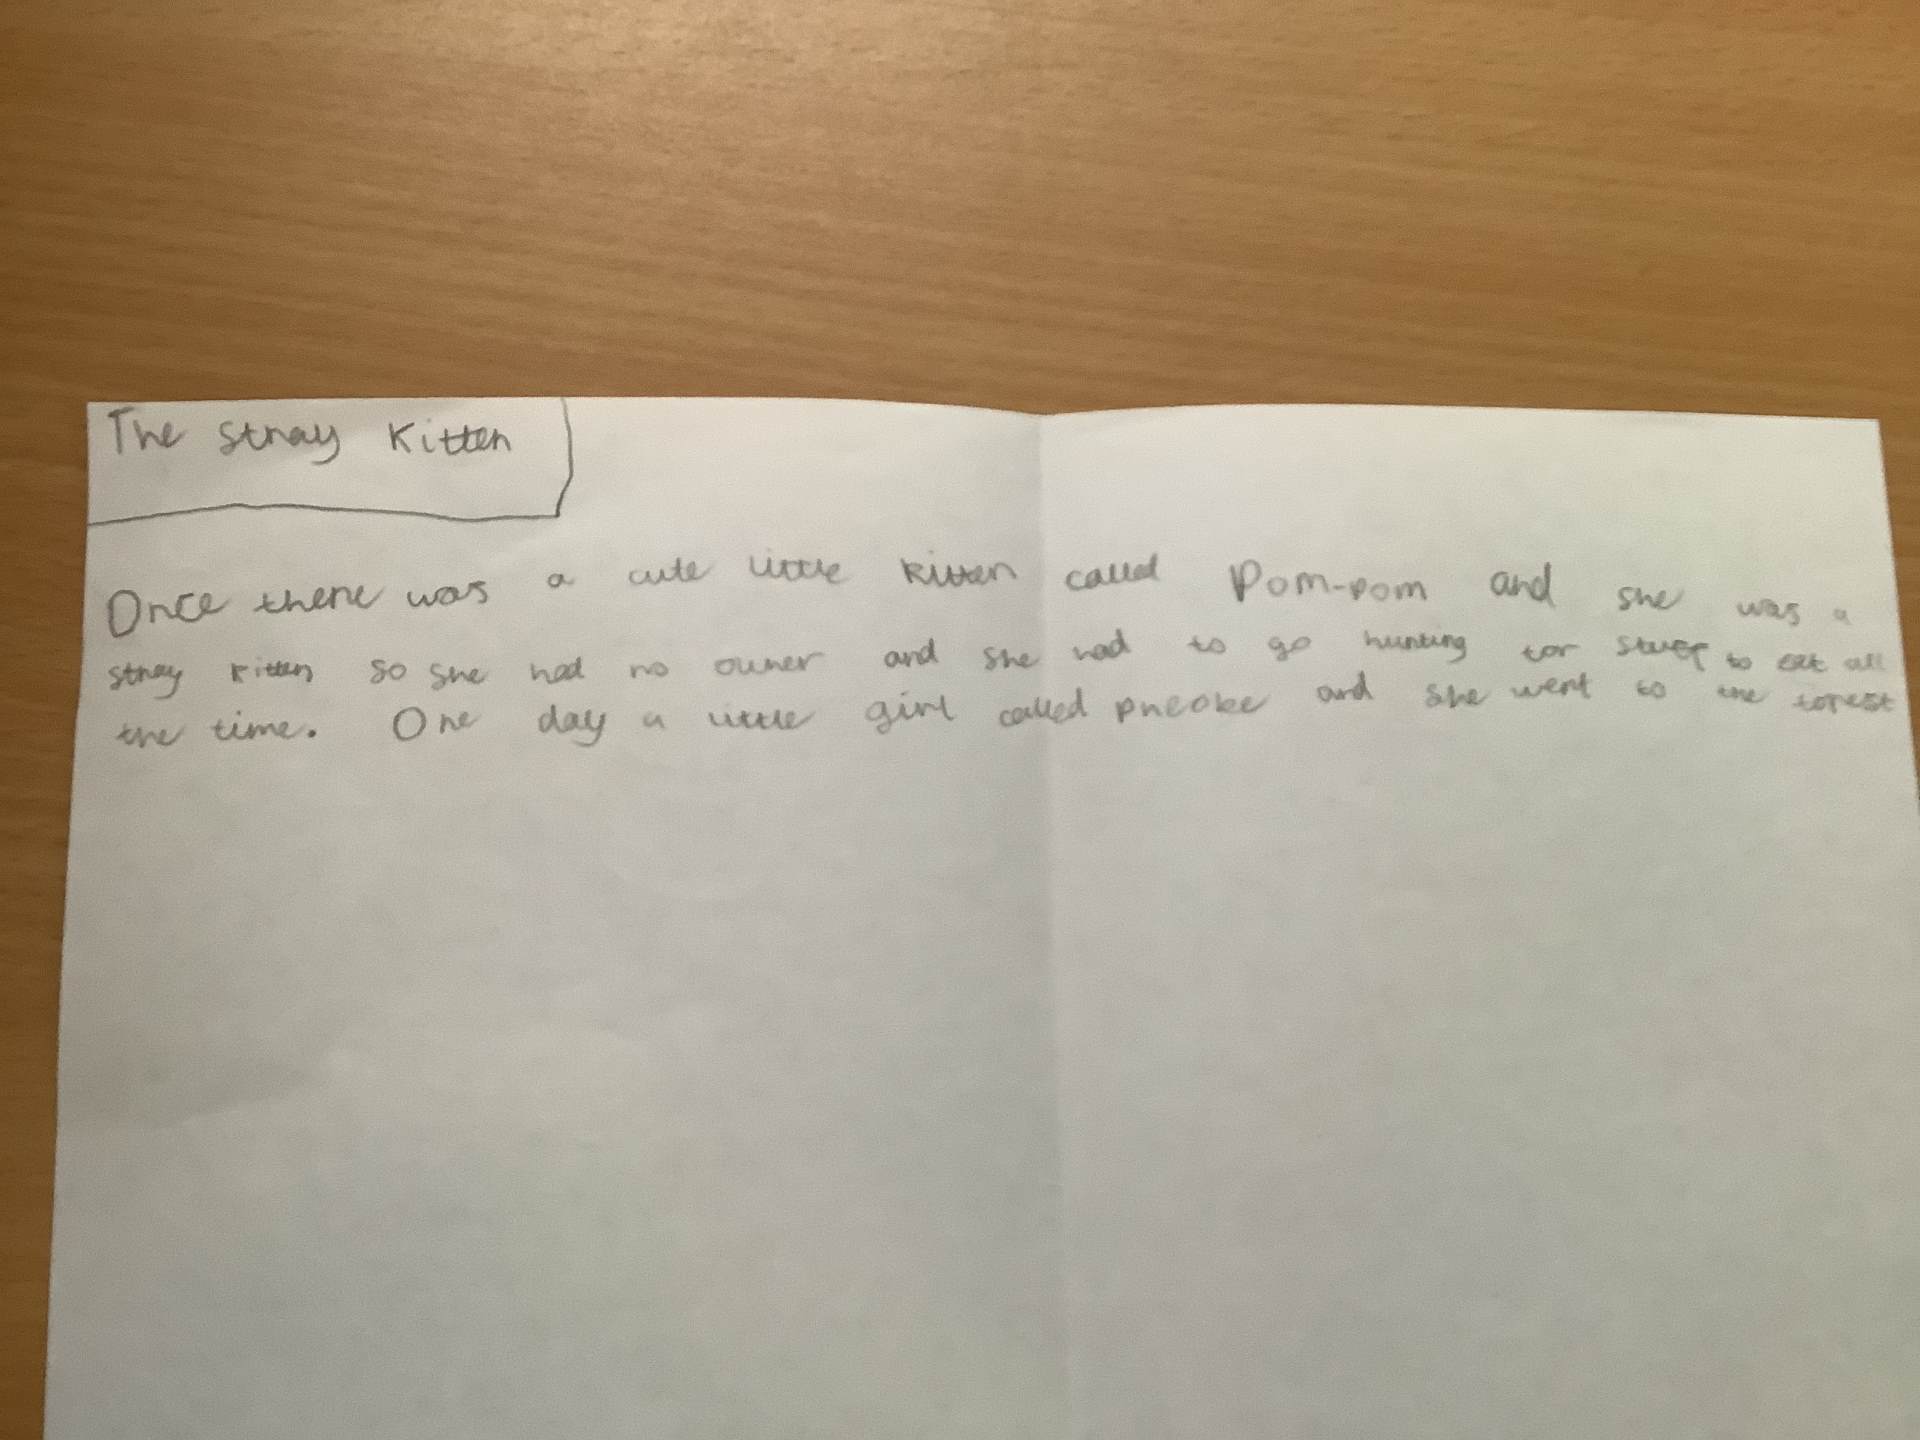 The stray Kitten
Once there was a cute little kitten called Pom-pom and she was a
stray kitten so she had no owner and she had to go hunting for stuff to eat all
the time. One day a little girl called pheobe and she went to the forest